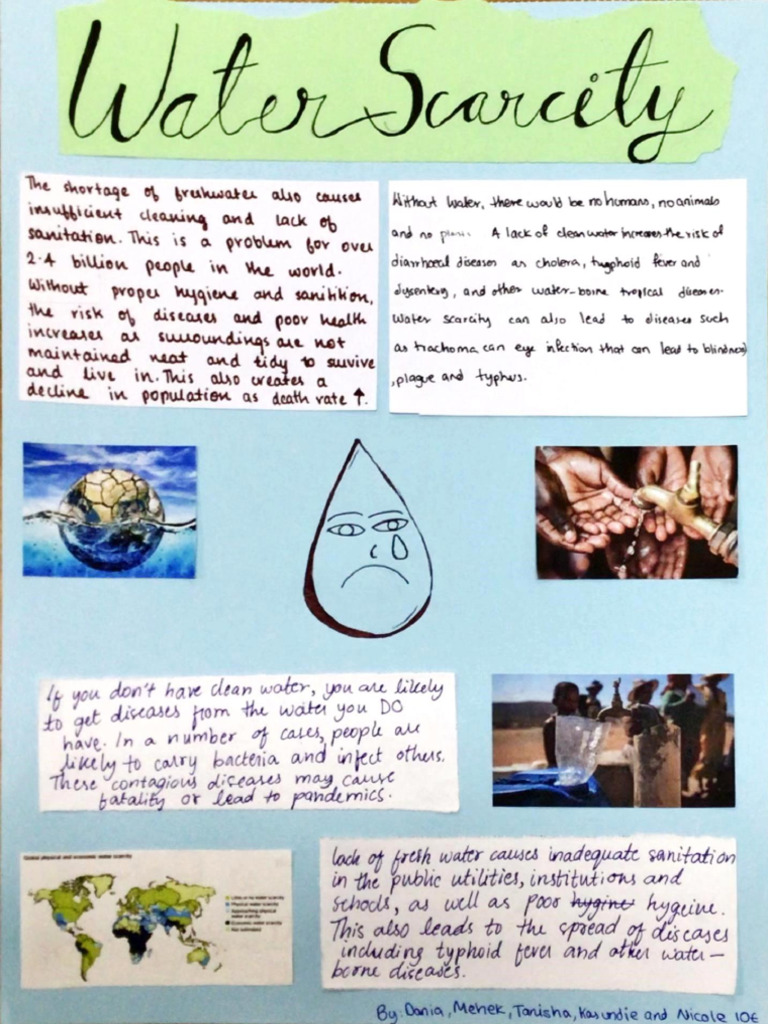 Water Scarcity
The shortage of freshwater also causes
insufficient cleaning and lack of
sanitation. This is a problem for over
2.4 billion people in the world.
Without proper hygiene and sanitition,
the risk of diseases and poor health
increases as surroundings are not
maintained neat and tidy to survive
and live in. This also creates a
decline in population as death rate ↑.
Without water, there would be no humans, no animals
and no plants. A lack of clean water increases the risk of
diarrhoeal diseases as cholera, tyyphoid fever and
dysentery, and other water-borne tropical diseases.
Water scarcity can also lead to diseases such
as trachoma can eye infection that can lead to blindness)
, plague and typhus.
If you don't have clean water, you are likely
to get diseases from the water you DO
have. In a number of cases, people are
likely to carry bacteria and infect others.
These contagious diseases may cause
fatality or lead to pandemics.
Global physical and economic water scarcity
Little or no water scarcity
Physical water scarcity
Approaching physical
water scarcity
Economic water scarcity
Not estimated
lack of fresh water causes inadequate sanitation
in the public utilities, institutions and
schools, as well as poor hygine hygeine.
This also leads to the spread of diseases
including typhoid fever and other water-
borne diseases.
By: Dania, Mehek, Tanisha, and Nicole 10E